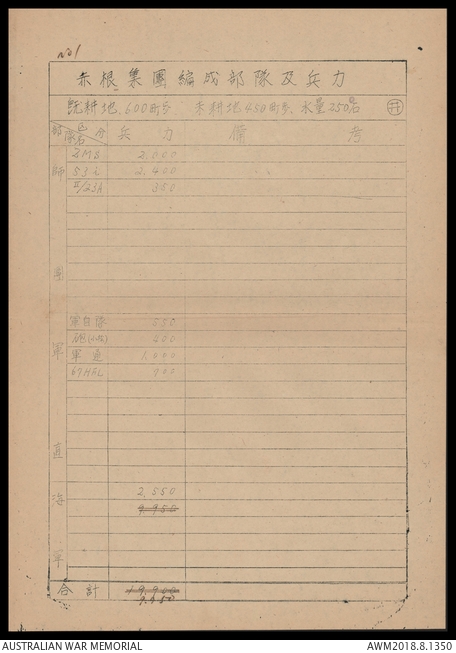 No1
赤根集團編成部隊及兵力
既耕地、600町歩 未耕地450町歩、水量250石 井
部隊名 区分 兵力 備考
師團
2MS 2,000
53i 2,400
II/23A 350
軍直
軍自隊 550
砲 400
軍通 1,000
67HFL 700
海軍
2,550
9,950
合計
9,950
AUSTRALIAN WAR MEMORIAL AWM2018.8.1350